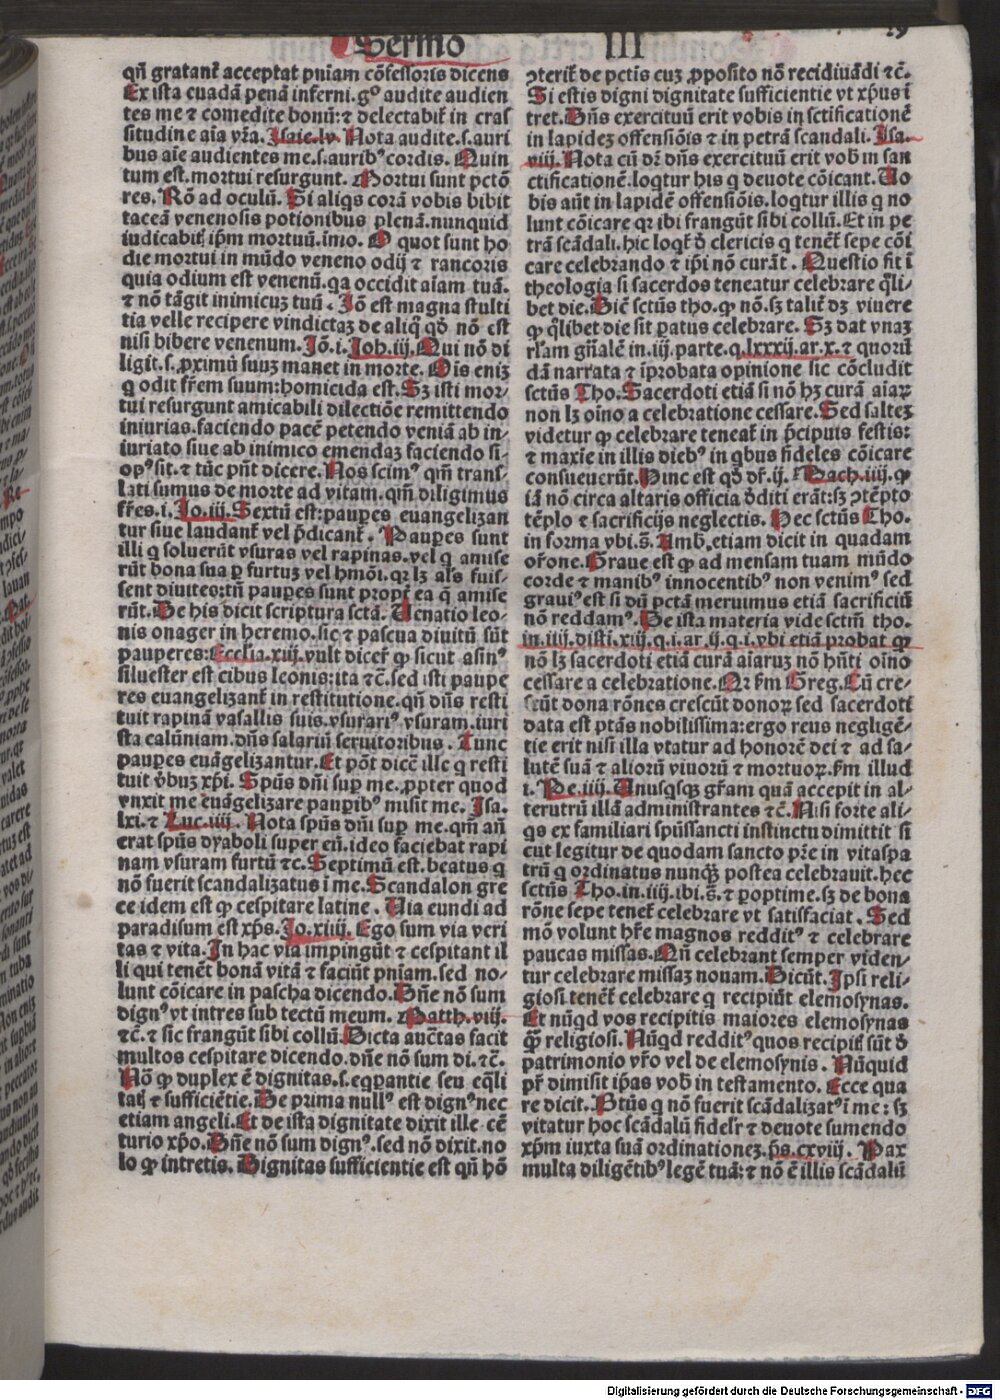 Sermo III
19
qñ gratant᷑ acceptat pniam cõfessoris dicens
Ex ista euadã penã inferni. gº audite audien
tes me ⁊ comedite bonũ: ⁊ delectabit᷑ in cras
situdine aĩa vr̃a. Isaie.lv. Nota audite .s. auri
bus aĩe audientes me .s. auribꝰ cordis. Quin
tum est. mortui resurgunt. Mortui sunt pctõ
res. Rõ ad oculũ. Si aliqs corã vobis bibit
taceã venenosis potionibus plenã. nunquid
iudicabit᷑ ip̃m mortuũ. imo. O quot sunt ho
die mortui in mũdo veneno odij ⁊ rancoris
quia odium est venenũ. qa occidit aĩam tuã.
⁊ nõ tãgit inimicuꝫ tuũ. Iõ est magna stulti
tia velle recipere vindictaꝫ de aliq̃ qđ nõ est
nisi bibere venenum. Iõ.i. Joh.iij. Qui nõ di
ligit .s. ꝓximũ suuꝫ manet in morte. Ois eniꝫ
q odit fr̃em suum: homicida est. Sꝫ isti mor⸗
tui resurgunt amicabili dilectiõe remittendo
iniurias. faciendo pacẽ petendo veniã ab in⸗
iuriato siue ab inimico emendaꝫ faciendo si⸗
opꝰ sit. ⁊ tũc pñt dicere. Nos scimꝰ qm̃ trans⸗
lati sumus de morte ad vitam. qm̃ diligimus
fr̃es. i. Jo.iij. Sextũ est: paupes euangelizan
tur siue laudant᷑ vel p̃dicant᷑. Paupes sunt
illi q soluerũt vsuras vel rapinas. vel q amise
rũt bona sua ꝑ furtuꝫ vel hmõi. qꝛ lꝫ als fuis⸗
sent diuites: tñ paupes sunt propꝉ ea q̃ amise
rũt. De his dicit scriptura sctã. Uenatio leo⸗
nis onager in heremo. sic ⁊ pascua diuitũ sũt
pauperes: Ecclia.xiij. vult dicer᷑ ꝙ sicut asinꝰ
siluester est cibus leonis: ita ⁊c̃. sed isti paupe
res euangelizant᷑ in restitutione. qñ dñs resti
tuit rapinã vasallis suis. vsurariꝰ vsuram. iuri
sta calũniam. dñs salariũ seruitoribus. Tunc
paupes euãgelizantur. Et põt dicẽ ille q resti
tuit v̾buꝫ xp̃i. Spũs dñi sup me. ꝓpter quod
vnxit me euãgelizare paupibꝰ misit me. Isa.
lxi. ⁊ Luc.iiij. Nota spũs dñi sup me. qm̃ añ
erat spũs dyaboli super eũ. ideo faciebat rapi
nam vsuram furtũ ⁊c. Septimũ est. beatus q
nõ fuerit scandalizatus ĩ me. Scandalon gre
ce idem est ꝙ cespitare latine. Uia eundi ad
paradisum est xp̃s. Jo.xiiij. Ego sum via veri
tas ⁊ vita. In hac via impingũt ⁊ cespitant il
li qui tenẽt bonã vitã ⁊ faciũt pniam. sed no⸗
lunt cõicare in pascha dicendo. Dñe nõ sum
dignꝰ vt intres sub tectũ meum. Matth.viij.
⁊c̃. ⁊ sic frangũt sibi collũ. Dicta auctas facit
multos cespitare dicendo. dñe nõ sum di. ⁊c̃.
Nõ ꝙ duplex ẽ dignitas .s. eqparantie seu eq̃li
tatꝭ ⁊ sufficiẽtie. De prima nullꝰ est dignꝰ nec
etiam angeli. Et de ista dignitate dixit ille cẽ
turio xp̃o. Dñe nõ sum dignꝰ. sed nõ dixit. no
lo ꝙ intretis. Dignitas sufficientie est qñ hõ
ↄterit᷑ de pctis cuꝫ ꝓposito nõ recidiuãdi ⁊c̃.
Si estis digni dignitate sufficientie vt xp̃us ĩ
tret. Dñs exercituũ erit vobis in sctificationẽ
in lapideꝫ offensiõis ⁊ in petrã scandali. Isa.
viij. Nota cũ dr̃ dñs exercituũ erit vob̃ in san
ctificationẽ. loqtur his q deuote cõicant. Uo
bis aũt in lapidẽ offensiõis. loqtur illis q no
lunt cõicare qꝛ ibi frangũt sibi collũ. Et in pe
trã scãdali. hic loqt᷑ đ clericis q tenẽt᷑ sepe cõi
care celebrando ⁊ ip̃i nõ curãt. Questio fit ĩ
theologia si sacerdos teneatur celebrare q̃li⸗
bet die. Dic̃ sctũs tho. ꝙ nõ. sꝫ talit᷑ dꝫ viuere
ꝙ q̃libet die sit patus celebrare. Sꝫ dat vnaꝫ
rl̃am gñalẽ in.iij. parte. q.lxxxij.ar.x. ⁊ quorũ
dã narrata ⁊ ĩprobata opinione sic cõcludit
sctũs Tho. Sacerdoti etiã si nõ hꝫ curã aĩaꝝ
non lꝫ oĩno a celebratione cessare. Sed salteꝫ
videtur ꝙ celebrare teneat᷑ in p̃cipuis festis:
⁊ maxie in illis diebꝰ in qbus fideles cõicare
consueuerũt. Hinc est qđ dr̃. ij. Mach.iiij. ꝙ
iã nõ circa altaris officia đditi erãt: sꝫ ↄtẽpto
tẽplo ⁊ sacrificijs neglectis. Hec sctũs Tho.
in forma vbi .s̃. Amb. etiam dicit in quadam
or̃one. Graue est ꝙ ad mensam tuam mũdo
corde ⁊ manibꝰ innocentibꝰ non venimꝰ sed
grauiꝰ est si dũ pctã meruimus etiã sacrificiũ
nõ reddamꝰ. De ista materia vide sctm̃ tho.
in.iiij.disti.xiij.q.i.ar.ij.q.i. vbi etiã probat ꝙ
nõ lꝫ sacerdoti etiã curã aĩaruꝫ nõ hñti oĩno
cessare a celebratione. Qꝛ km̃ Greg. Cũ cre⸗
scũt dona rõnes crescũt donoꝝ sed sacerdoti
data est ptãs nobilissima: ergo reus negligẽ⸗
tie erit nisi illa vtatur ad honorẽ dei ⁊ ad sa⸗
lutẽ suã ⁊ aliorũ viuorũ ⁊ mortuoꝝ. km̃ illud
i. Pe.iiij. Unusqsqꝫ gr̃am quã accepit in al⸗
terutrũ illã administrantes ⁊c̃. Nisi forte ali⸗
qs ex familiari spũssancti instinctu dimittit si
cut legitur de quodam sancto pr̃e in vitaspa
trũ q ordinatus nunq̃ꝫ postea celebrauit. hec
sctũs Tho. in.iiij. ibi .s̃. ⁊ ꝑoptime. sꝫ de bona
rõne sepe tenet᷑ celebrare vt satisfaciat. Sed
mõ volunt hr̃e magnos redditꝰ ⁊ celebrare
paucas missas. Qñ celebrant semper viden⸗
tur celebrare missaꝫ nouam. Dicũt. Ipsi reli⸗
giosi tenẽt᷑ celebrare q recipiũt elemosynas.
Et nũqd vos recipitis maiores elemosynas
q̃ꝫ religiosi. Nũqd redditꝰ quos recipitꝭ sũt đ
patrimonio vr̃o vel de elemosynis. Nũquid
pr̃ dimisit ip̃as vob̃ in testamento. Ecce qua
re dicit. Btũs q nõ fuerit scãdalizatꝰ ĩ me: sꝫ
vitatur hoc scãdalũ fidelꝭr ⁊ deuote sumendo
xp̃m iuxta suã ordinationeꝫ. p̃s.cxviij. Pax
multa diligẽtibꝰ legẽ tuã: ⁊ nõ ẽ illis scãdalũ
Digitalisierung gefördert durch die Deutsche Forschungsgemeinschaft - DFG